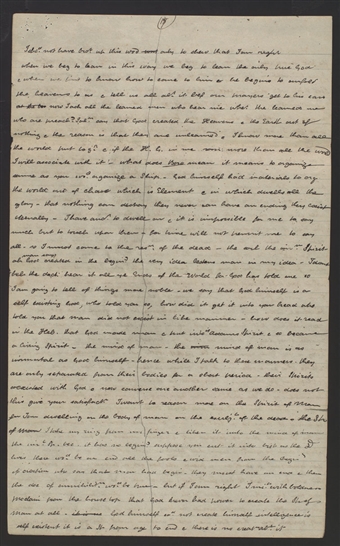 I shod. not have brot. up this word only to shew that I am right
when we beg to learn in this way we beg to learn the only true God
& when we find to know how to come to him & he begins to unfold
the heavens to us & tell us all abt. it bef our prayers get to his ears
now I ask all the learned men who hear me why the learned men
who are preachg. Salvn. say that God created the Heavens & the Earth out of
nothing & the reason is that they are unlearned & I know more than all
the world put togr. & if the H. G. in me com more than all the world
I will associate with it. what does Bara mean it means to organize
same as you wod. organize a Ship. God himself had materials to org
the world out of chaos which is Element & in which dwells all the
glory. that nothing can destroy they never can have an ending they coexist
eternally. I have anor. to dwell on & it is impossible for me to say
much but to touch upon them. for time will not permit me to say
all. so I must come to the resn. of the dead. the soul the inn. Spirit
God created in the beging. the very idea lessens man in my idea. I dont
bel. the doct. hear it all ye Ends of the World for God has told me so
I am going to tell of things more noble. we say that God himself is a
self existing God, who told you so, how did it get it into your head who
told you that man did not exist in like manner. how does it read
in the Heb. that God made man & put into it Adams Spirit & so became
a living Spirit. the mind of man. the mind of man is as
immortal as God himself. hence while I talk to these mourners they
are only separated from their bodies for a short period. their Spirits
coexisted with God & now converse one another same as we do. does not
this give your satisfactn. I want to reason more on the Spirit of Man
for I am dwelling on the body of man on the subjt. of the dead. the Sp
of Man I take my ring from my finger & liken it unto the mind of man
the im. Sp. bec. it has no begin. suppose you cut it into but as the D
lives there wod. be an end all the fools & wise men from the begin.
of creation who say that man had begin. they must have an end & then
the doc of annihilitn. wod. be true. but if I am right I mit with boldness
proclaim from the house top that God never had power to create the Sp of
man at all. God himself cod. not create himself intelligence is
self existent it is a Sp from age to end & there is no creatn. abt. it